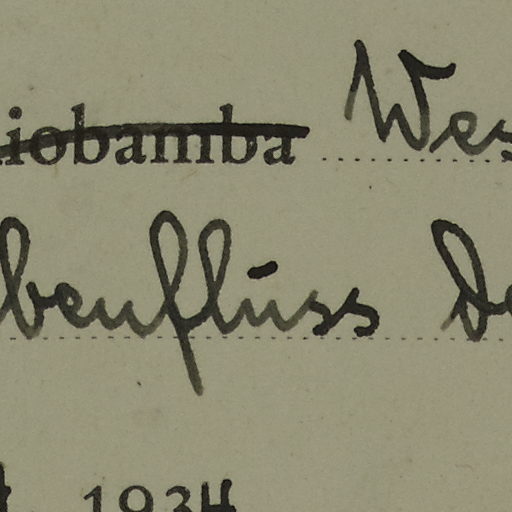 iobamba Wes
benfluss De
1934